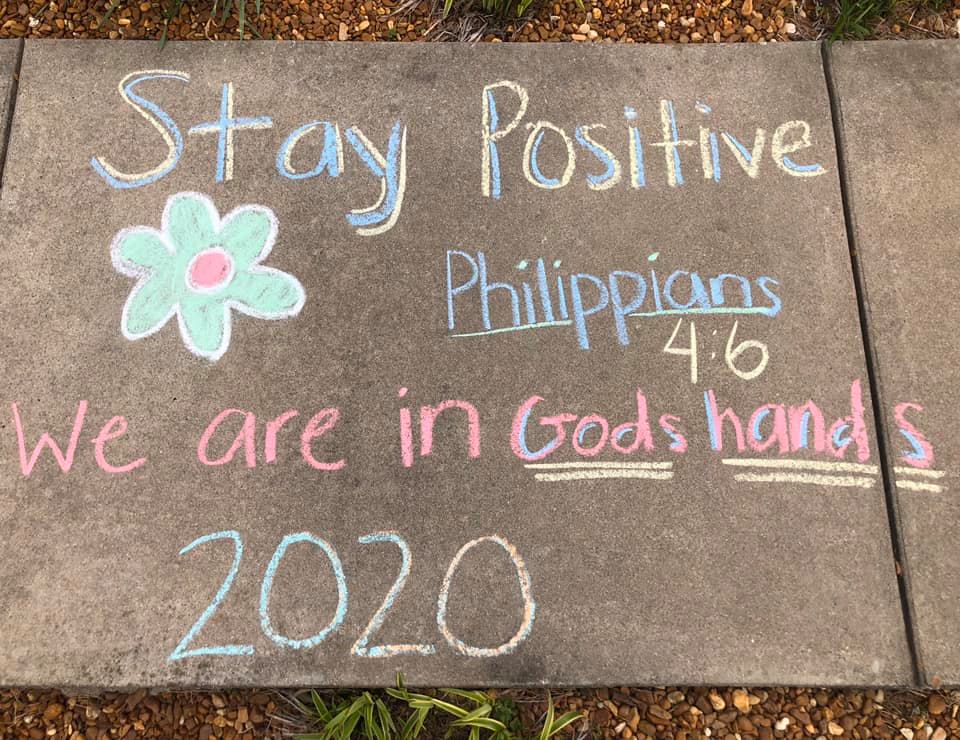 Stay Positive
Philippians
4:6
We are in Gods hands
2020